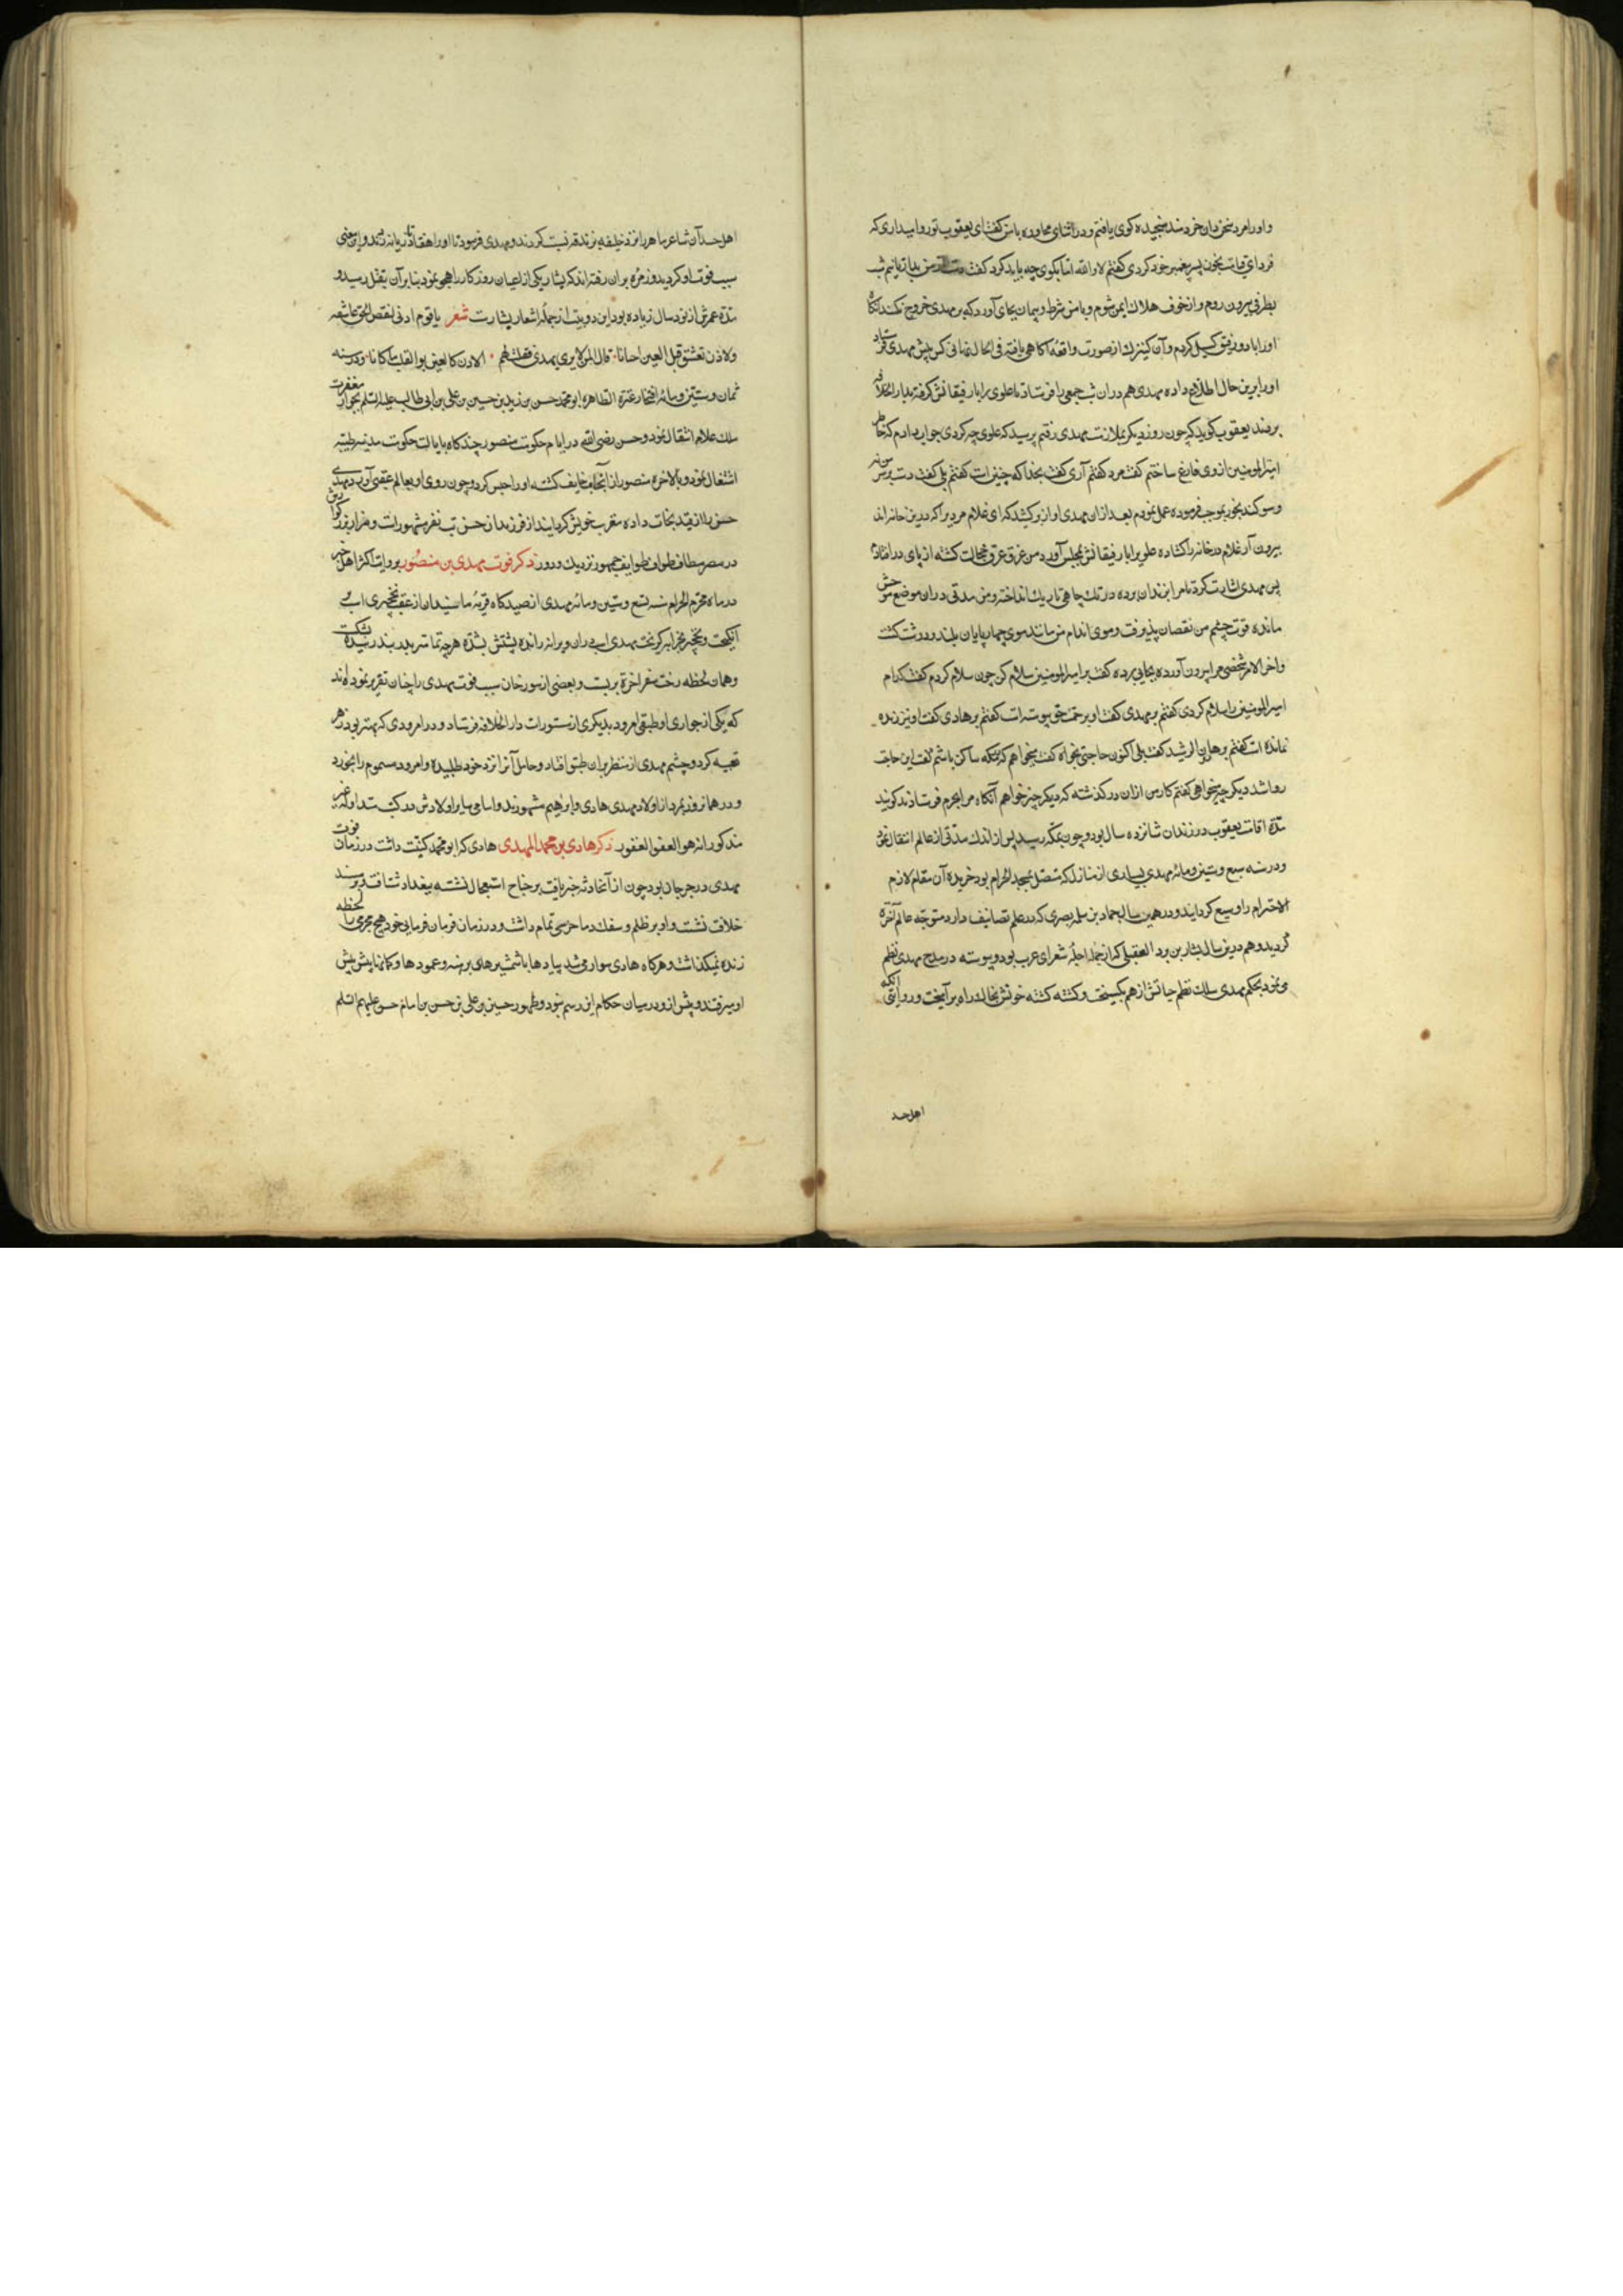 و او را مرد سخن دان خردمند سنجیده کوی یافتم و در اثنای محاوره با من کفت ای یعقوب تو روا میداری که
فردای قیامت بخون پسر پیغمبر خود کردی کفتم لا والله اما بکوی چه باید کرد کفت دست از من بدار تا نیم شب
بطرفی بیرون روم و از خوف هلاک ایمن شوم و با من شرط و پیمان بجای آورد که بر مهدی خروج نکند آنکاه
او را با دو رفیق کسیل کردم و آن کنیزک از صورت واقعه آکاهی یافته فی الحال نهانی کس پیش مهدی فرستاد
او را برین حال اطلاع داده مهدی هم در ان شب جمعی را فرستاد تا علوی را با رفیقانش کرفته بدار الخلافه
بردند یعقوب کوید که چون روز دیکر بملازمت مهدی رفتم پرسید که علوی چه کردی جواب دادم که خاطر
امیر المومنین از وی فارغ ساختم کفت مرد کفتم آری کفت بخدا که چنین است کفتم بلی کفت دست بر سر من نه
و سوکند بخور بموجب فرموده عمل نمودم بعد از ان مهدی اواز بر کشید که ای غلام مردیرا که درین خانه اند
بیرون آر غلام در خانه را کشاده علویرا با رفیقانش بمجلس آورد من غرق عرق خجالت کشته از پای در افتادم
پس مهدی اشارت کرد تا مرا بزندان برده در تک چاهی تاریک انداختند و من مدتی در ان موضع موحش
مانده قوت چشم من نقصان پذیرفت و موی اندام من مانند موی چهارپایان بلند و درشت کشت
و اخر الامر شخصی مرا بیرون آورده بجایی برده کفت بر امیر المومنین سلام کن چون سلام کردم کفت کدام
امیر المومنین را سلام کردی کفتم بر مهدی کفت او برحمت حق پیوسته است کفتم بر هادی کفت او نیز زنده
نمانده است کفتم بر هارون الرشید کفت بلی اکنون حاجتی بخواه کفتم میخواهم که بمکه ساکن باشم کفت این حاجت
روا شد دیکر چه میخواهی کفتم کار من ازان در کذشته که دیکر چیز خواهم آنکاه مرا بحرم فرستادند کویند
مدة اقامت یعقوب در زندان شانزده سال بود و چون بمکه رسید پس از اندک مدتی از عالم انتقال نمود
و در سنه سبع و ستین و مائه مهدی بسیاری از منازل که متصل بمسجد الحرام بود خریده آن مقام لازم
الاحترام را وسیع کردانید و در همین سال حماد بن سلمه بصری که در علم تصانیف دارد متوجه عالم آخرة
کردید و هم درین سال بشار بن برد العقیلی که از جمله اجله شعرای عرب بود و پیوسته در مدح مهدی نظم
می نمود بحکم مهدی سلک نظم حیاتش از هم بکسیخت و کشته کشته خونش بخاک راه برآمیخت و روایتی آنکه
اهل حسد
اهل حسد آن شاعر ماهر را نزد خلیفه بزندقه نسبت کردند و مهدی فرمود تا او را هفتاد تازیانه زدند و این معنی
سبب فوت او کردید و زمره بران رفته اند که بشار یکی از اعیان روزکار را هجو نمود بنابر آن بقتل رسید و
مدة عمرش از نود سال زیاده بود این دو بیت از جمله اشعار بشارست شعر یا قوم اذنی لبعض الحی عاشقه
والاذن تعشق قبل العین احیانا قالوا بمن لا یری یهدی فقلت لهم الاذن کالعین یوالقلب ما کانا و در سنه
ثمان و ستین و مائه افتخار عترة الطاهره ابو محمد حسن بن زید بن حسین بن علی بن ابی طالب علیه السلم بجوار مغفرت
ملک علام انتقال نمود و حسن رضی الله در ایام حکومت منصور چند کاه بایالت حکومت مدینه طیبه
اشتغال نمود و بالاخره منصور از آنجناب خایف کشته او را حبس کرد و چون روی او بعالم عقبی آورد مهدی
حسن را از قید نجات داده مقرب خویش کردانید از فرزندان حسن سید نفیسه مشهور است و مزار بزرکوارش
در مصر مطاف طواف طوایف جمهور نزدیک و دور ذکر فوت مهدی بن منصور بروایت اکثر اهل خبر
در ماه محرم الحرام سنه تسع و ستین و مائه مهدی از صیدکاه قریه ماسبذان از عقب نخجیری اسب
انکیخت و نخجیر بخرابه کریخت مهدی اسب در ان ویرانه رانده پشتش بشدة هرچه تمامتر بدر بند رسیده شکست
و همان لحظه رخت سفر اخرة بربست و بعضی از مورخان سبب فوت مهدی را چنان تقریر نموده اند
که یکی از جواری او طبقی امرود بدیکری از مستورات دار الخلافه فرستاد و در امرودی که بهتر بود زهر
تعبیه کرد و چشم مهدی از منظر بران طبق افتاد و حامل آنرا نزد خود طلبیده و امرود مسموم را بخورد
و در همان روز بمرد از اولاد مهدی هادی و ابراهیم مشهورند و اسامی سایر اولادش در کتب متداوله
مذکور انه هو العفو الغفور ذکر هادی بن محمد المهدی هادی که ابو محمد کنیت داشت در زمان فوت
مهدی در جرجان بود چون از آنحادثه خبر یافت بر جناح استعجال نشسته ببغداد شتافت و بر مسند
خلافت نشست و او بر ظلم و سفک دما حرصی تمام داشت و در زمان فرمان فرمایی خود هیچ مجرمی را لحظه
زنده نمیکذاشت و هرکاه هادی سوار می شد پیادها با شمشیرهای برهنه و عمودها و کمانها پیش پیش
او میرفتند و پیش از و در میان حکام این رسم نبود و ظهور حسین بن علی بن حسن بن امام حسن علیهم السلم